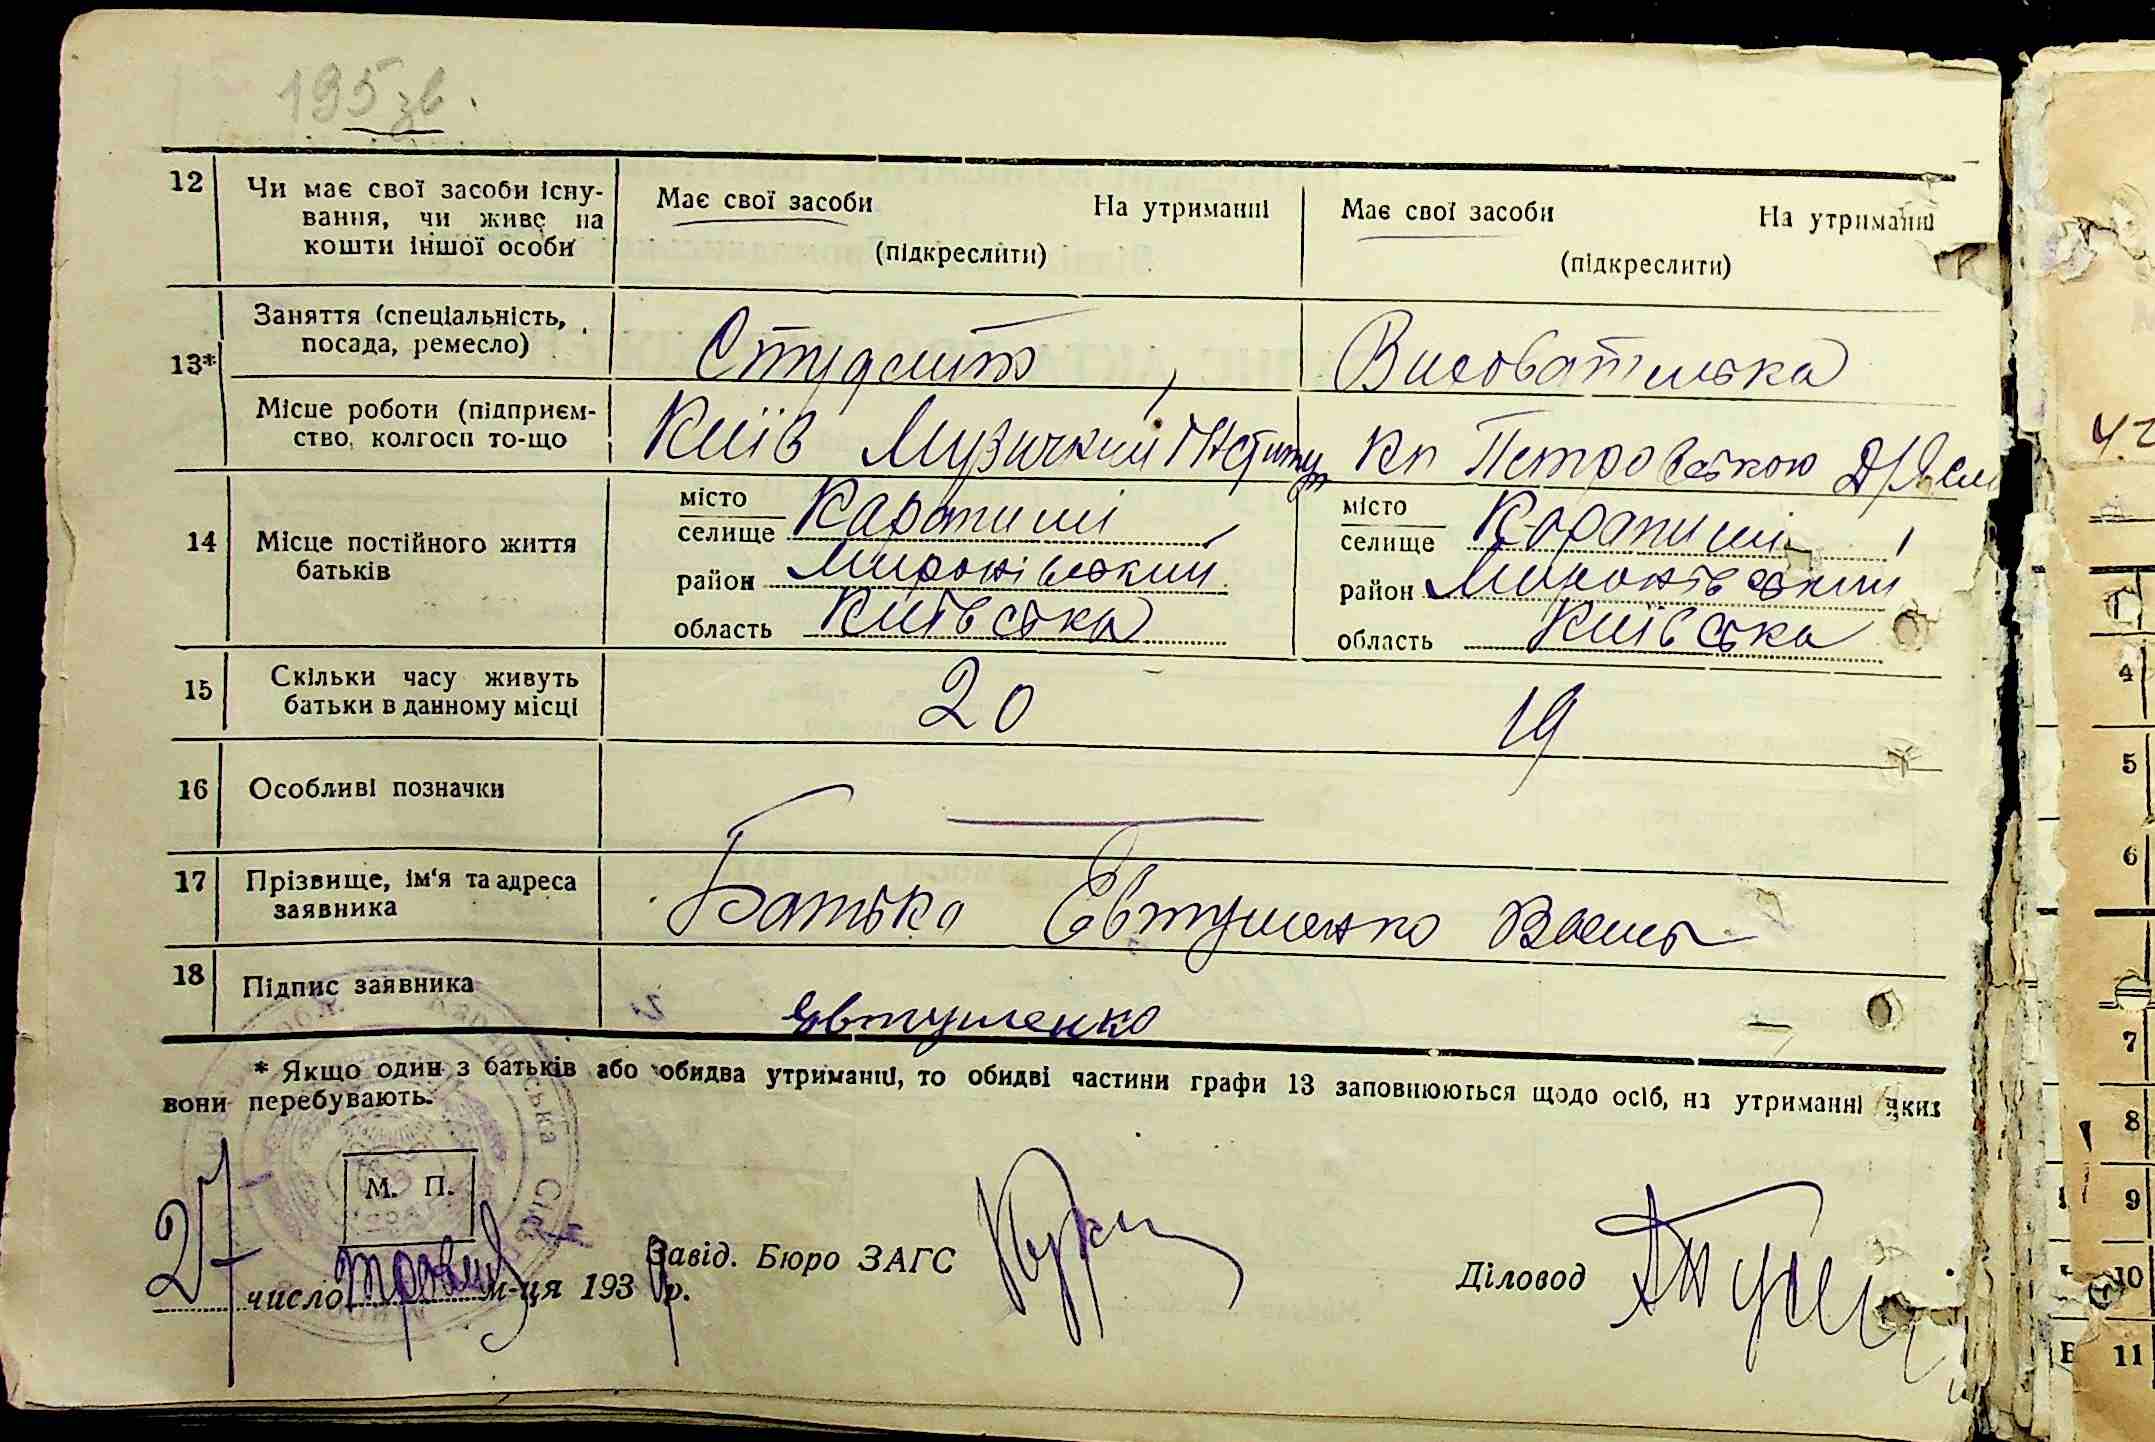 195 зв.
12 Чи має свої засоби існу-
вання, чи живе на
кошти іншої особи
Має свої засоби На утриманні
(підкреслити)
Має свої засоби На утриманні
(підкреслити)
13* Заняття (спеціальність,
посада, ремесло)
Студент,
Вихователька
Місце роботи (підприєм-
ство, колгосп то-що
Київ Музичний Інститут
Кп Петровською Д/Ясл
14 Місце постійного життя
батьків
місто
селище Карапиші,
район Миронівський
область Київська
місто
селище Карапиші,
район Миронівський
область Київська
15 Скільки часу живуть
батьки в данному місці
20
19
16 Особливі позначки
17 Прізвище, ім'я та адреса
заявника
Батько Євтушенко Василь
18 Підпис заявника
Євтушенко
* Якщо один з батьків або обидва утриманці, то обидві частини графи 13 заповнюються щодо осіб, на утриманні яких
вони перебувають.
М. П.
27 число травня м-ця 193 р.
Завід. Бюро ЗАГС
Діловод
4
5
6
7
8
9
10
11